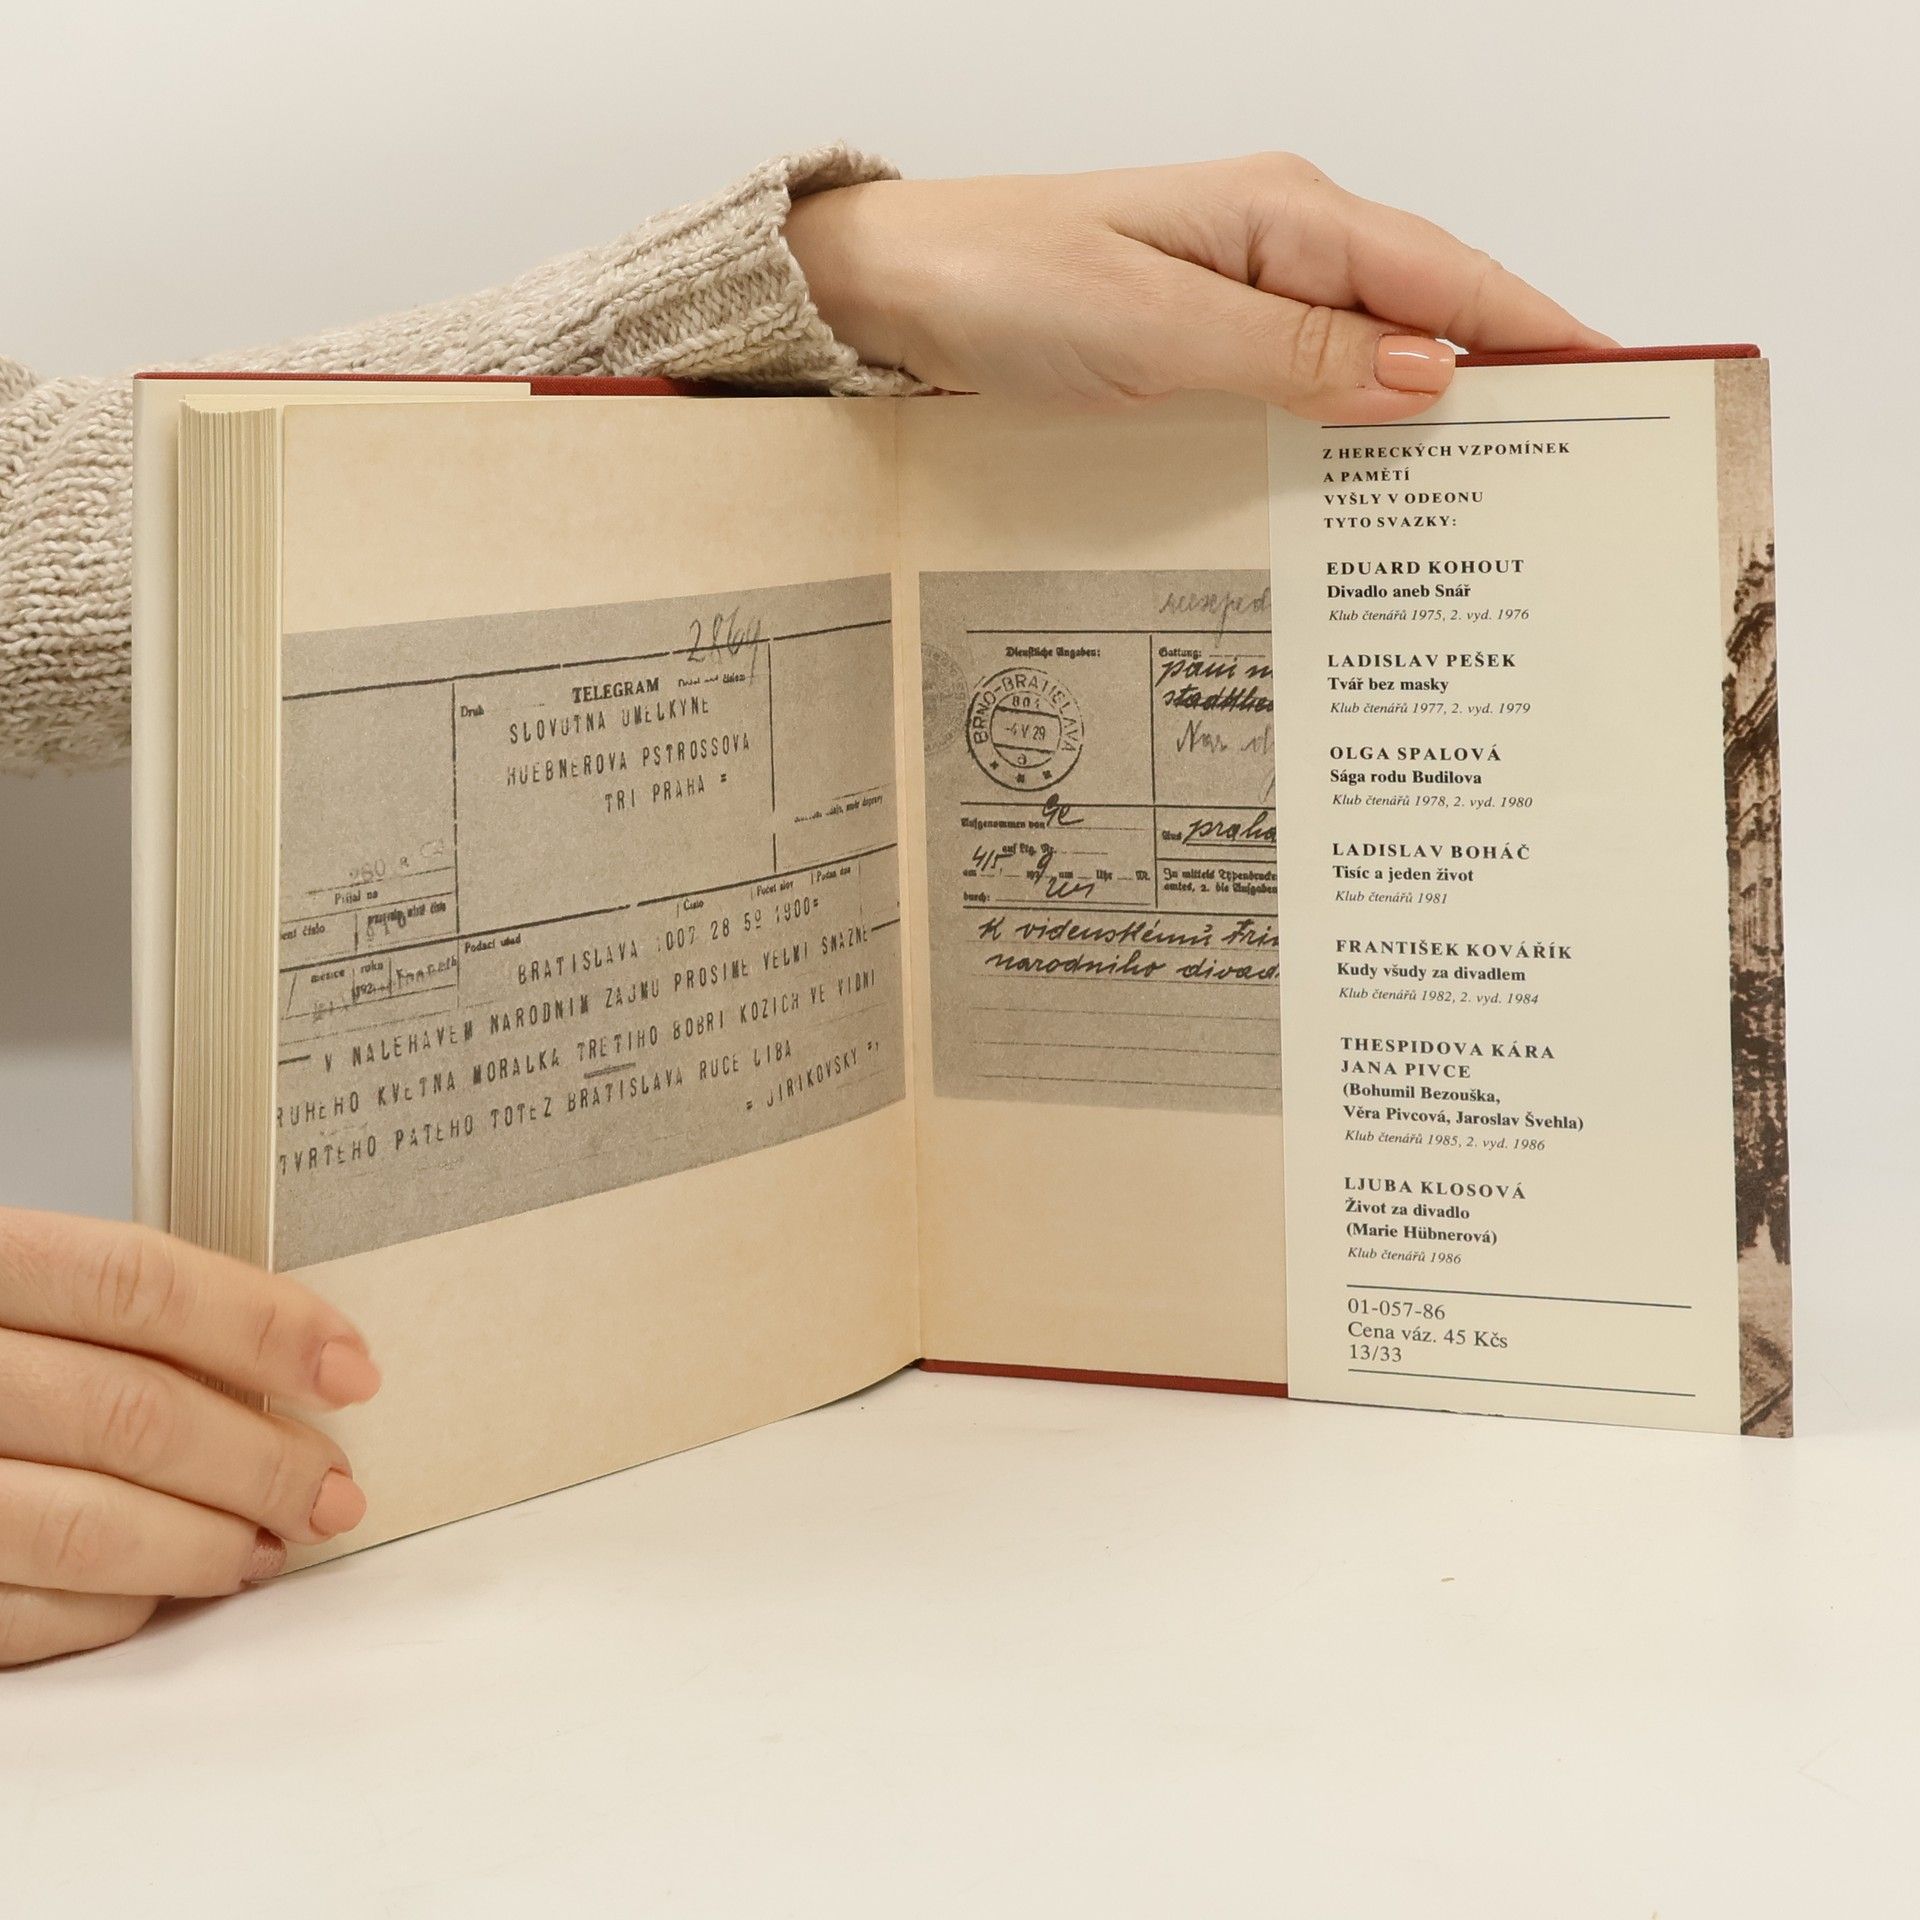 2869
TELEGRAM
Druh
SLOVUTNA UMELKYNE
HUEBNEROVA PSTROSSOVA
TRI PRAHA =
Přijal na
Podací úřad
Číslo
Počet slov
Podán dne
měsíce
roku
BRATISLAVA 1007 28 59 1900=
V NALEHAVEM NARODNIM ZAJMU PROSIME VELMI SNAZNE
RUHEHO KVETNA MORALKA TRETIHO BOBRI KOZICH VE VIDNI
TVRTEHO PATEHO TOTEZ BRATISLAVA RUCE LIBA
= JIRIKOVSKY =,
Dienstliche Angaben:
Gattung:
BRNO-BRATISLAVA
801
-4 V 29
Aufgenommen von
auf Ltg. Nr.
4/5
Uhr
M.
durch:
Aus praha
k videnskému
narodniho
Z HERECKÝCH VZPOMÍNEK
A PAMĚTÍ
VYŠLY V ODEONU
TYTO SVAZKY:
EDUARD KOHOUT
Divadlo aneb Snář
Klub čtenářů 1975, 2. vyd. 1976
LADISLAV PEŠEK
Tvář bez masky
Klub čtenářů 1977, 2. vyd. 1979
OLGA SPALOVÁ
Sága rodu Budilova
Klub čtenářů 1978, 2. vyd. 1980
LADISLAV BOHÁČ
Tisíc a jeden život
Klub čtenářů 1981
FRANTIŠEK KOVÁŘÍK
Kudy všudy za divadlem
Klub čtenářů 1982, 2. vyd. 1984
THESPIDOVA KÁRA
JANA PIVCE
(Bohumil Bezouška,
Věra Pivcová, Jaroslav Švehla)
Klub čtenářů 1985, 2. vyd. 1986
LJUBA KLOSOVÁ
Život za divadlo
(Marie Hübnerová)
Klub čtenářů 1986
01-057-86
Cena váz. 45 Kčs
13/33